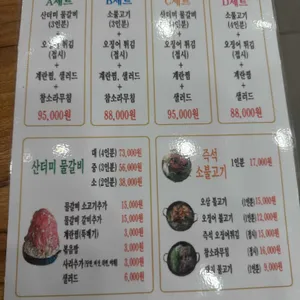 A세트
산더미 물갈비
(3인분)
+
오징어 튀김
(접시)
+
계란찜, 샐러드
+
참소라무침
95,000원
B세트
소불고기
(3인분)
+
오징어 튀김
(접시)
+
계란찜, 샐러드
+
참소라무침
88,000원
C세트
산더미 물갈비
(3인분)
+
오징어 튀김
(접시)
+
계란찜
+
샐러드
95,000원
D세트
소불고기
(4인분)
+
오징어 튀김
(접시)
+
계란찜
+
샐러드
88,000원
산더미 물갈비
대 (4인분) 73,000원
중 (3인분) 56,000원
소 (2인분) 38,000원
물갈비 소고기추가 15,000원
물갈비 갈비추가 15,000원
계란찜(뚝배기) 3,000원
볶음밥 3,000원
사리추가 3,000원
샐러드 6,000원
즉석
소불고기
1인분 17,000원
오삼 불고기 (1인분) 15,000원
오징어 불고기 (1인분) 12,000원
즉석 오징어튀김 (접시) 15,000원
참소라무침 (접시) 16,000원
불고기 (1인분) 9,000원